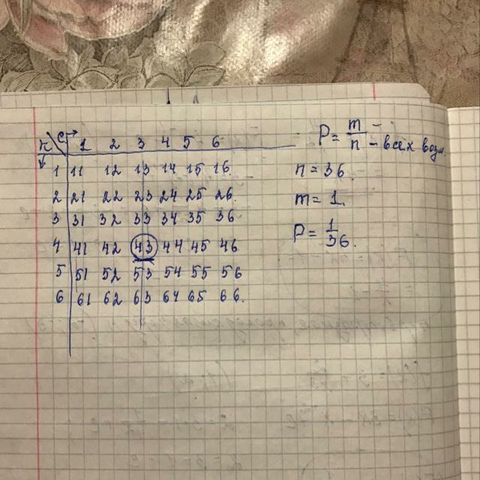 к с 1 2 3 4 5 6
1 11 12 13 14 15 16
2 21 22 23 24 25 26
3 31 32 33 34 35 36
4 41 42 43 44 45 46
5 51 52 53 54 55 56
6 61 62 63 64 65 66.
P = m/n - всех возм.
n = 36.
m = 1.
P = 1/36.